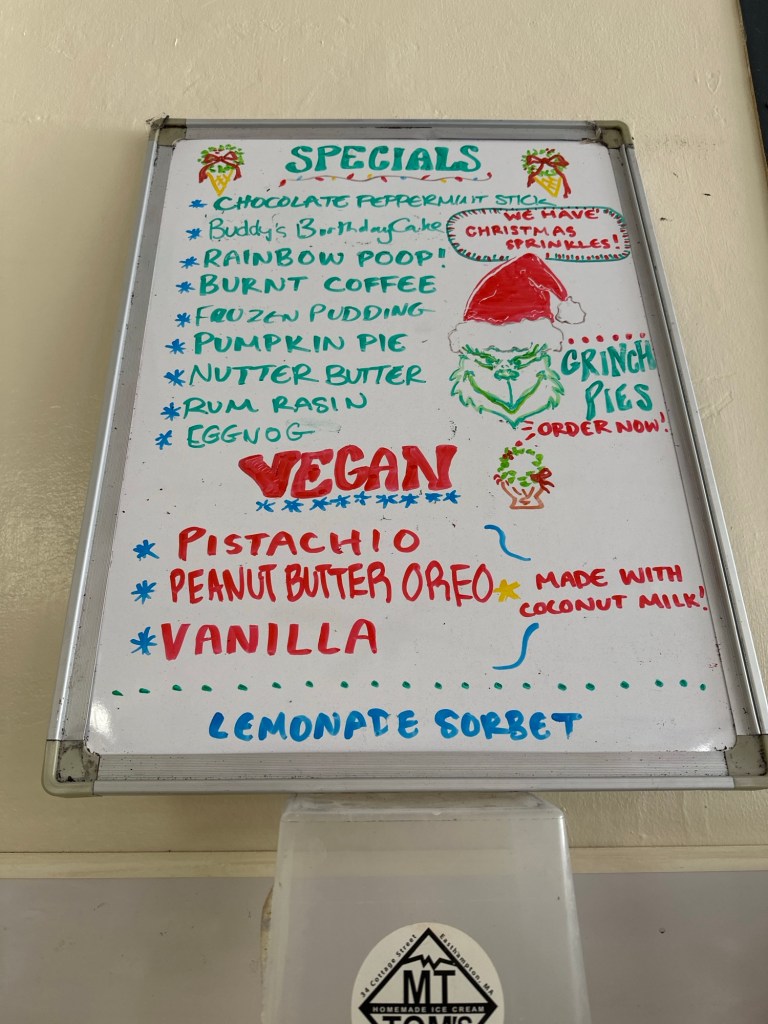 SPECIALS
* CHOCOLATE PEPPERMINT STICK
* Buddy's Birthday Cake
* RAINBOW POOP!
* BURNT COFFEE
* FROZEN PUDDING
* PUMPKIN PIE
* NUTTER BUTTER
* RUM RASIN
* EGGNOG
WE HAVE
CHRISTMAS
SPRINKLES!
GRINCH
PIES
ORDER NOW!
VEGAN
* PISTACHIO
* PEANUT BUTTER OREO
* VANILLA
* MADE WITH
COCONUT MILK!
LEMONADE SORBET
34 Cottage Street Easthampton, MA.
MT
HOMEMADE ICE CREAM
TOM'S